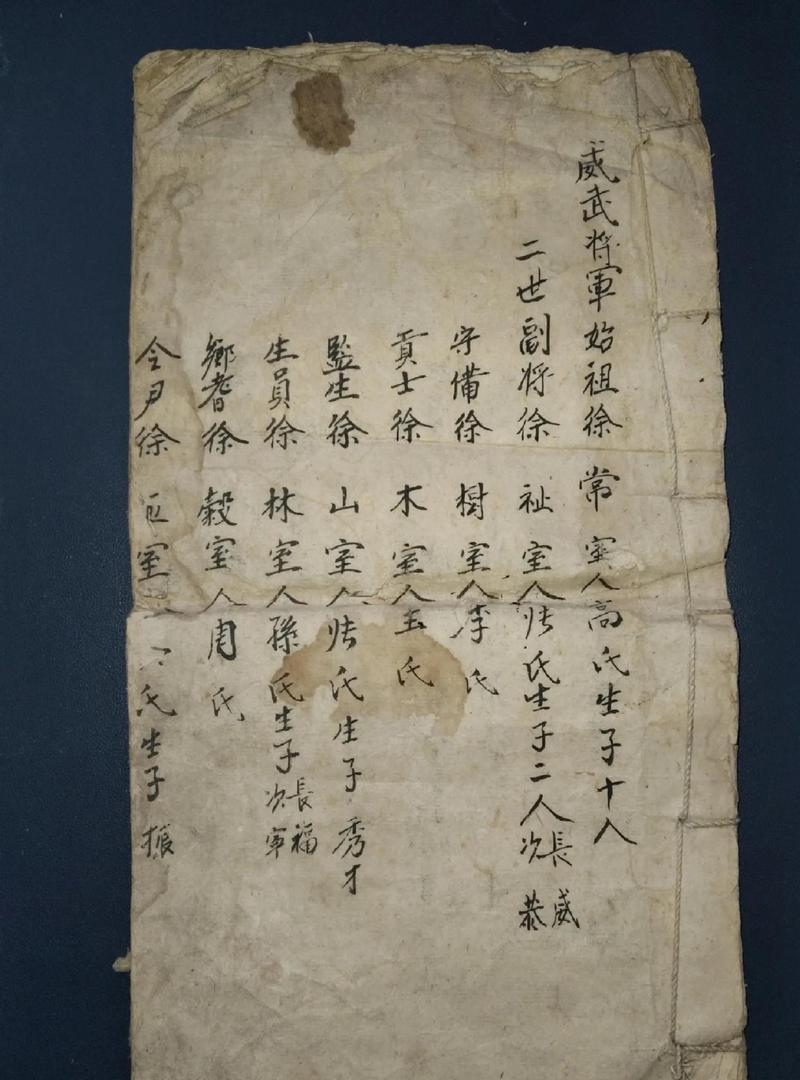 威武将軍始祖徐常室人高氏生子十人
二世副将徐祉室人張氏生子二人長威次恭
守備徐樹室人李氏
貢士徐木室人玉氏
監生徐山室人張氏生子秀才
生員徐林室人孫氏生子長福次軍
鄉耆徐穀室人周氏
令尹徐室氏生子振